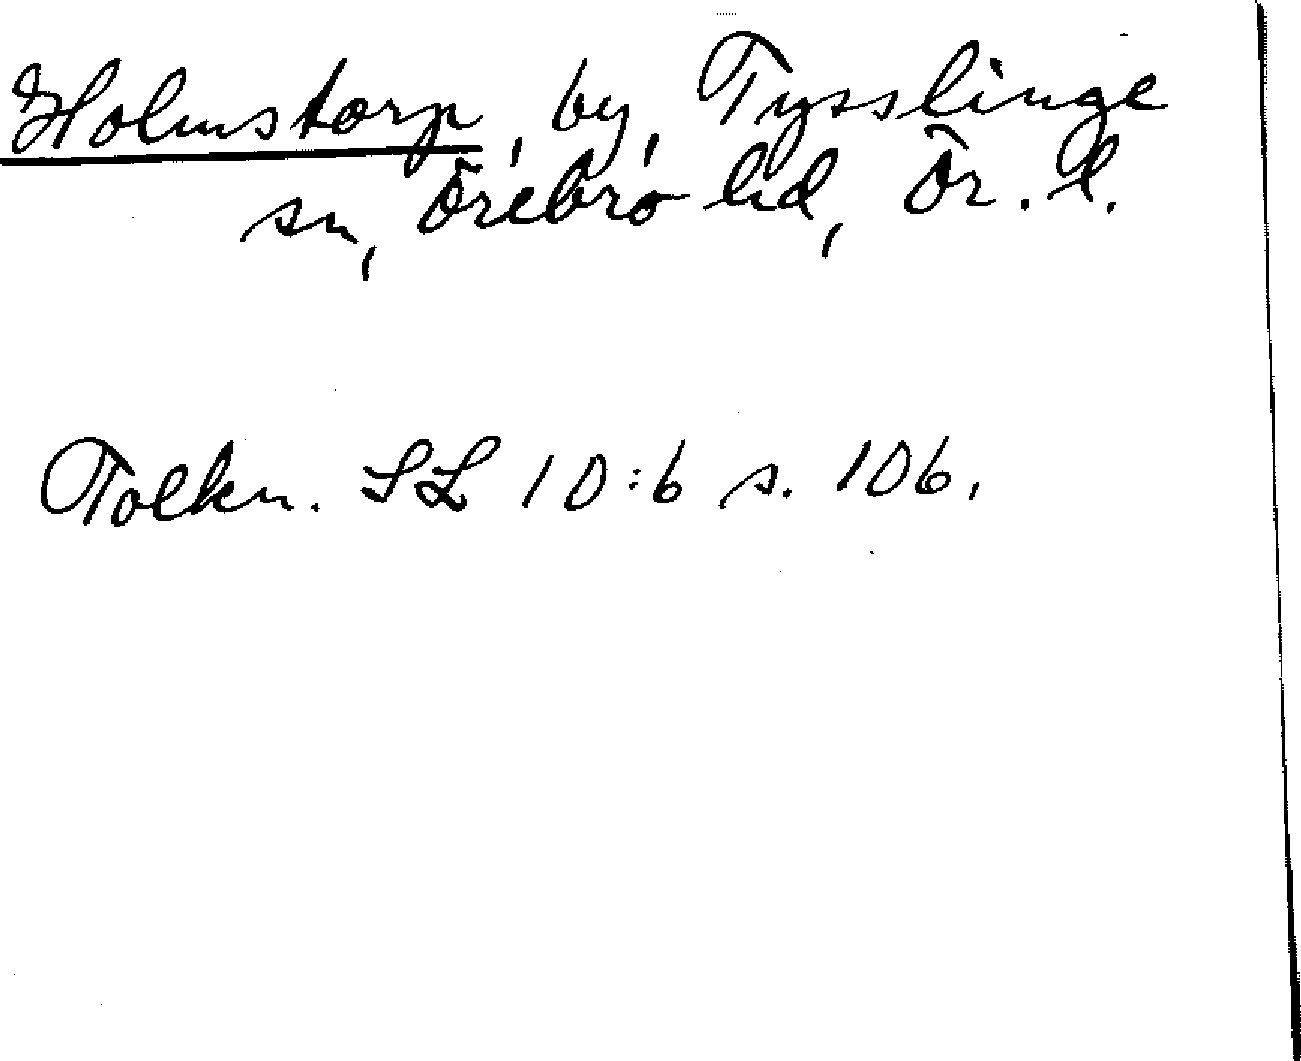 Holmstorp, by, Tysslinge
sn, Örebro hd, Ör. l.
Tolkn. SL 10:6 s. 106.